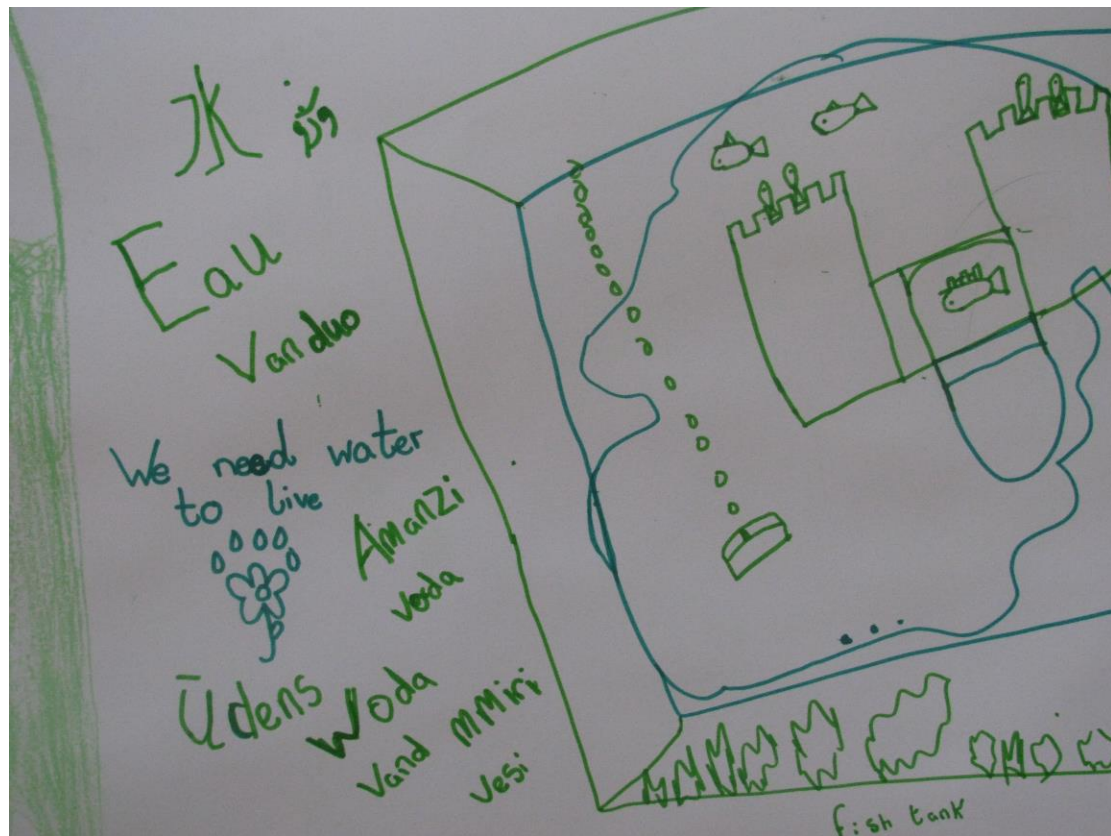 水
Eau
Vanduo
We need water
to live
Amanzi
voda
Ūdens
Woda
Vand
MMiri
vesi
fish tank